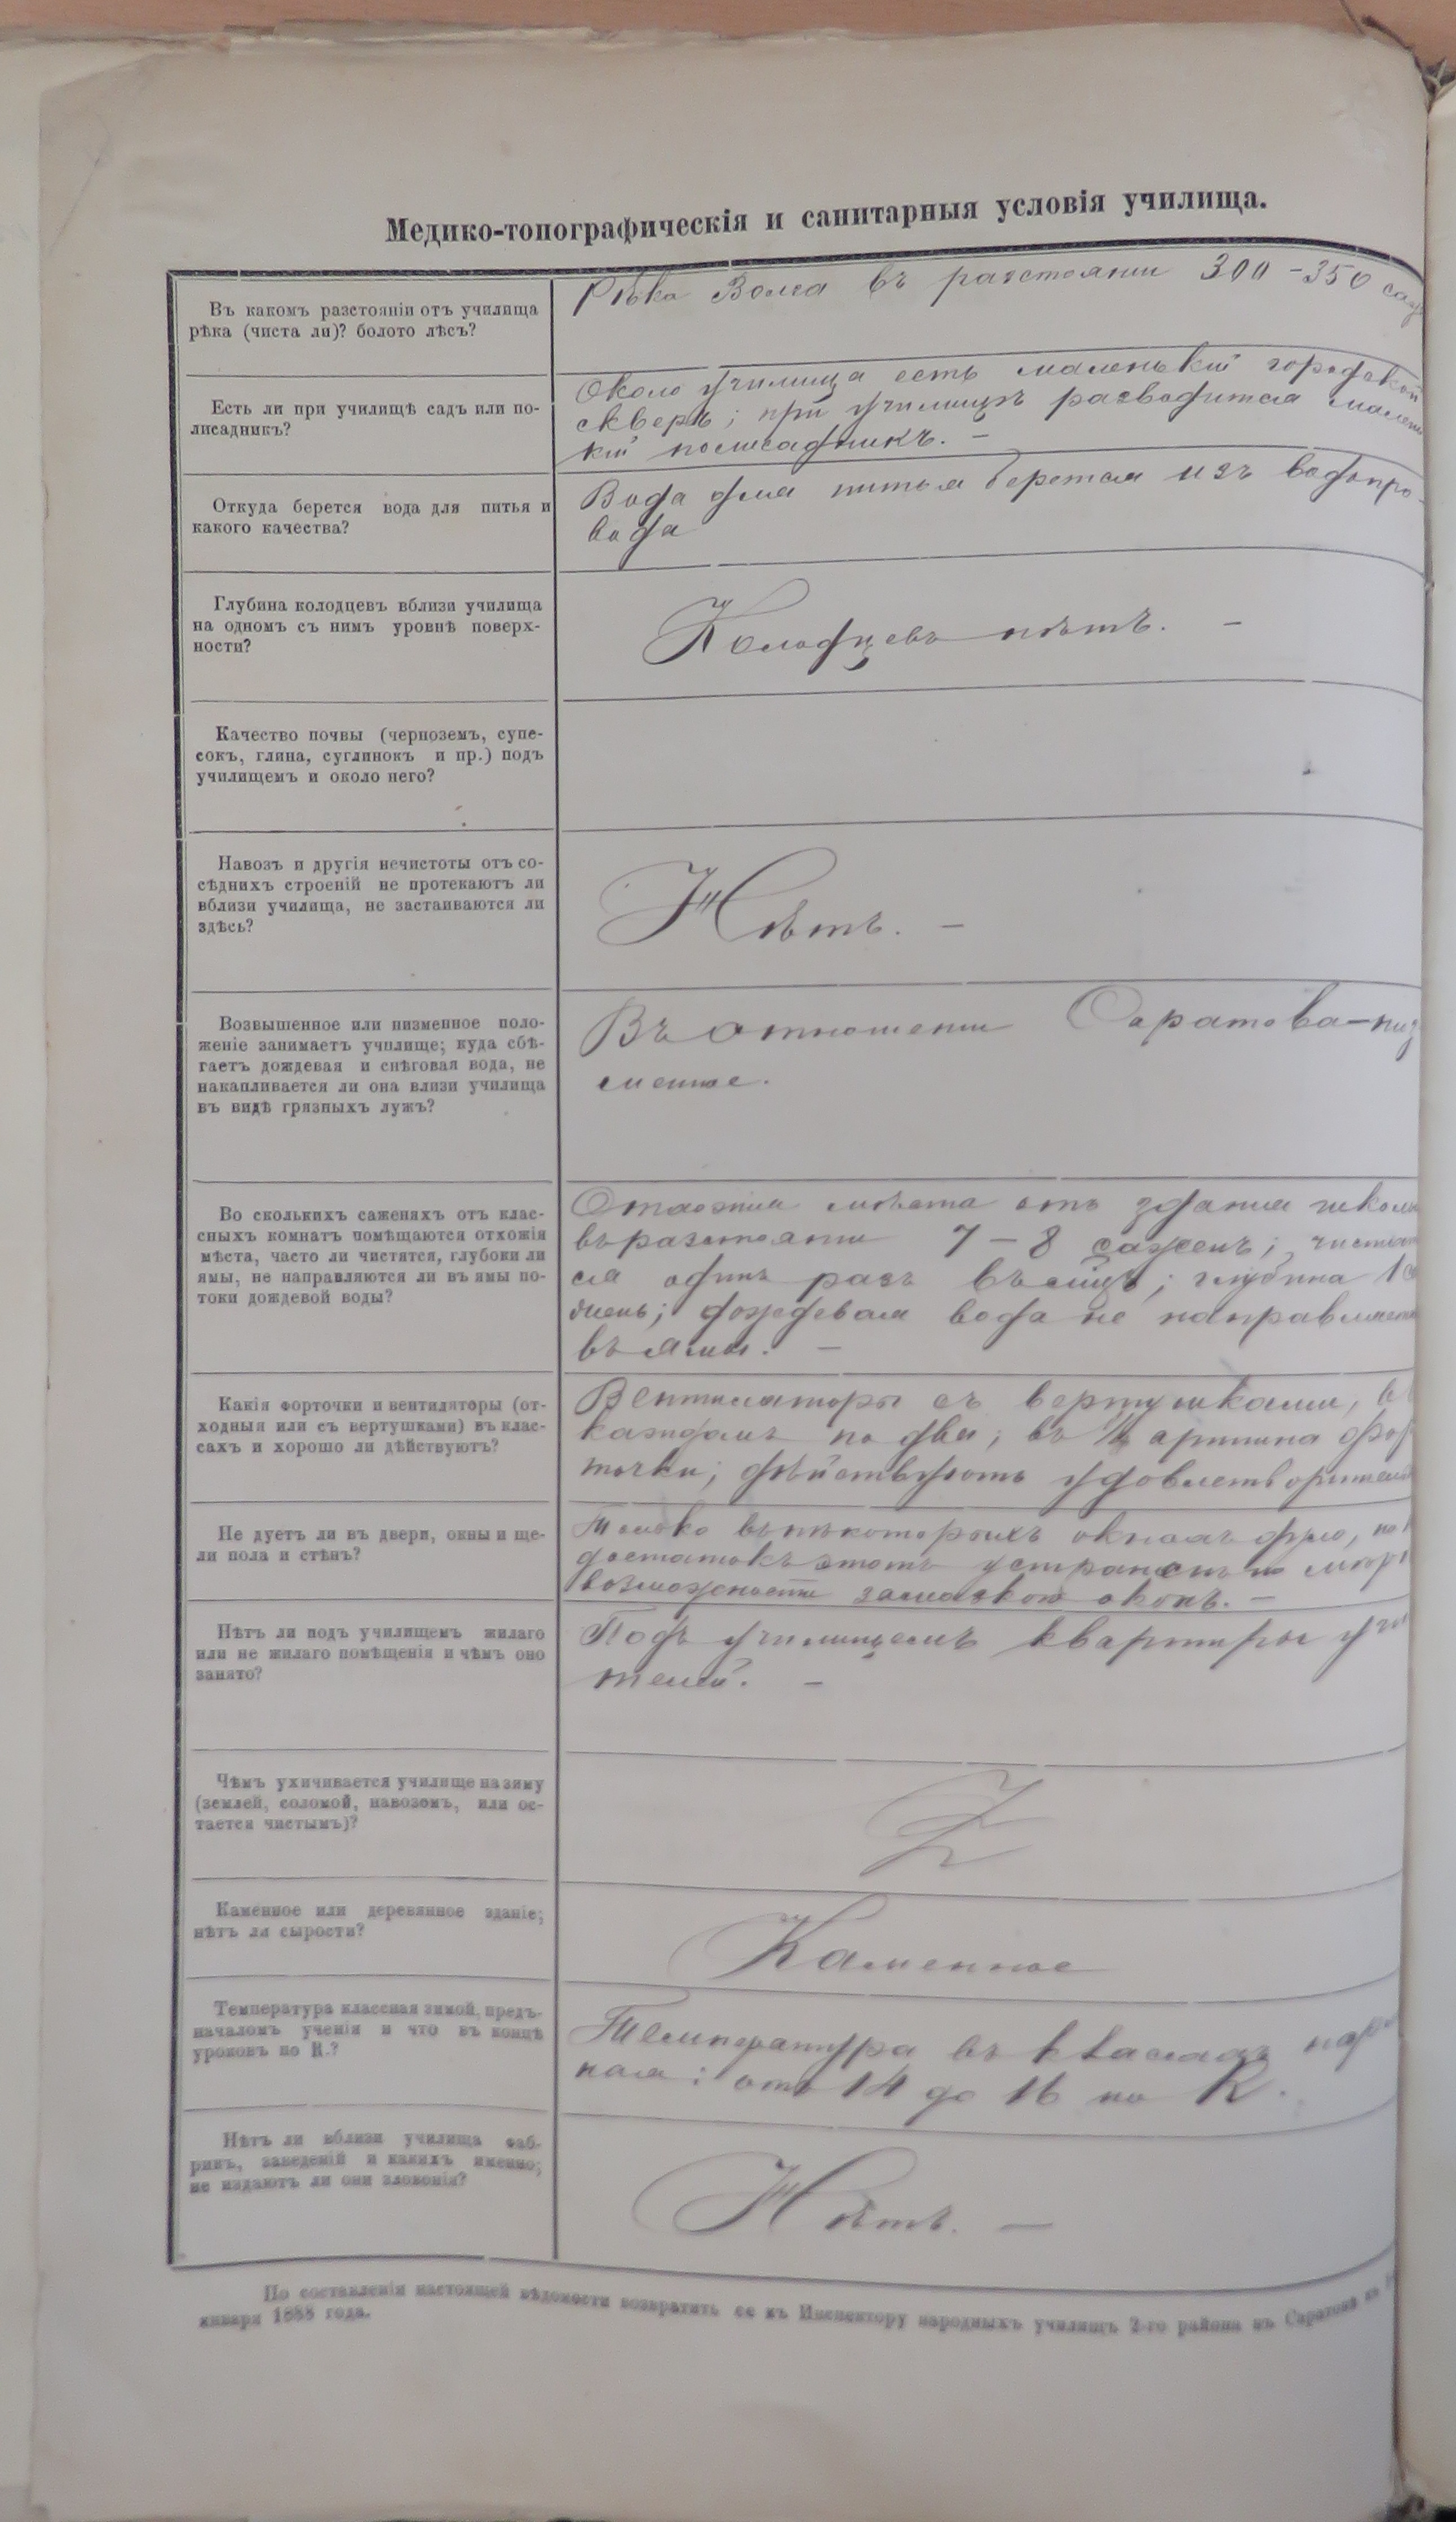 Медико-топографическія и санитарныя условія училища.
Въ какомъ разстояніи отъ училища
рѣка (чиста ли)? болото лѣсъ?
Рѣка Волга въ разстоянии 300 - 350 саж
Есть ли при училищѣ садъ или по-
лисадникъ?
Около училища есть маленькій городской
скверъ; при училищѣ разводится малень
кій полисадникъ. -
Откуда берется вода для питья и
какого качества?
Вода для питья берется изъ водопро-
вода
Глубина колодцевъ вблизи училища
на одномъ съ нимъ уровнѣ поверх-
ности?
Колодцевъ нѣтъ. -
Качество почвы (черноземъ, супе-
сокъ, глина, суглинокъ и пр.) подъ
училищемъ и около него?
Навозъ и другія нечистоты отъ со-
сѣднихъ строеній не протекаютъ ли
вблизи училища, не застаиваются ли
здѣсь?
Нѣтъ. -
Возвышенное или низменное поло-
женіе занимаетъ училище; куда сбѣ-
гаетъ дождевая и снѣговая вода, не
накапливается ли она влизи училища
въ видѣ грязныхъ лужъ?
Въ отношении Саратова-низ
менное.
Во сколькихъ саженяхъ отъ клас-
сныхъ комнатъ помѣщаются отхожія
мѣста, часто ли чистятся, глубоки ли
ямы, не направляются ли въ ямы по-
токи дождевой воды?
Отхожия мѣста отъ здания школы
въ разстоянии 7 - 8 сажень; чистят
ся одинъ разъ въ мцъ; глубина 1 са
жень; дождевая вода не направляется
въ ямы. -
Какія форточки и вентиляторы (от-
ходныя или съ вертушками) въ клас-
сахъ и хорошо ли дѣйствуютъ?
Вентиляторы съ вертушками, въ
каждомъ по два; въ ½ аршина фор
точки; дѣйствуютъ удовлетворительн
Не дуетъ ли въ двери, окны и ще-
ли пола и стѣнъ?
Только въ нѣкоторыхъ окнахъ дуло, но н
достатокъ этотъ устраненъ по мѣрѣ
возможности замазкою оконъ. -
Нѣтъ ли подъ училищемъ жилаго
или не жилаго помѣщенія и чѣмъ оно
занято?
Подъ училищемъ квартиры учи
телей. -
Чѣмъ ухичивается училище на зиму
(землей, соломой, навозомъ, или ос-
тается чистымъ)?
Каменное или деревянное зданіе;
нѣтъ ли сырости?
Каменное
Температура классная зимой предъ-
началомъ ученія и что въ концѣ
уроковъ по R.?
Температура въ классахъ норм
ная: отъ 14 до 16 по R.
Нѣтъ ли вблизи училища фаб-
рикъ, заведеній и какихъ именно;
не издаютъ ли они зловонія?
Нѣтъ. -
По составленіи настоящей вѣдомости возвратить ее къ Инспектору народныхъ училищъ 2-го района въ Саратовѣ къ
января 1888 года.